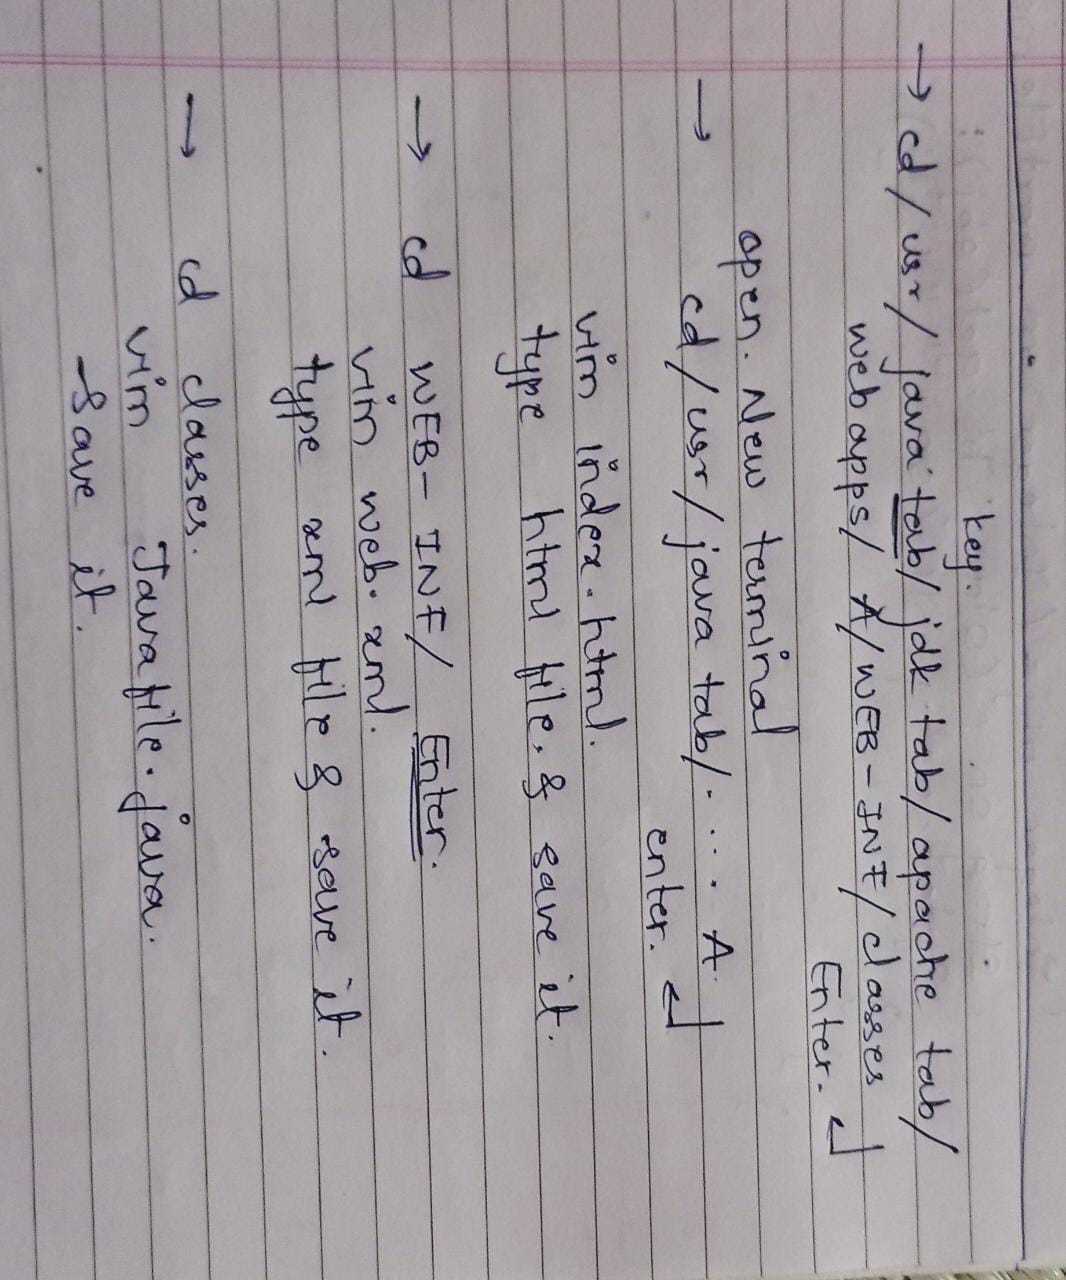 key.
→ cd/usr/java tab/jdk tab/apache tab/
webapps/A/WEB-INF/classes
Enter. ↵
open. New terminal
→ cd/usr/java tab/. . . . A.
enter. ↵
vim index.html.
type html file. & save it.
→ cd WEB-INF/ Enter.
vim web.xml.
type xml file & save it.
→ cd classes.
vim Javafile.java.
- Save it.